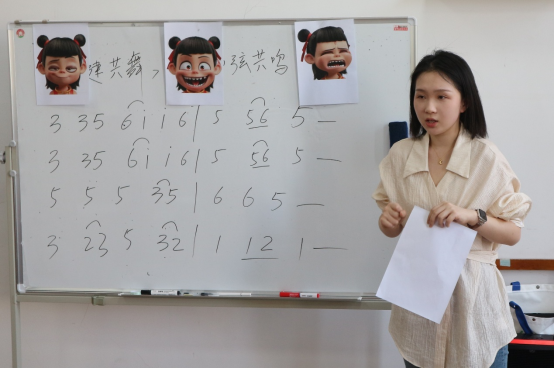 建共舞，弦共鸣
3 35 6i i 6 | 5 56 5 —
3 35 6i i 6 | 5 56 5 —
5 5 5 35 | 6 6 5 —
3 23 5 32 | 1 12 1 —